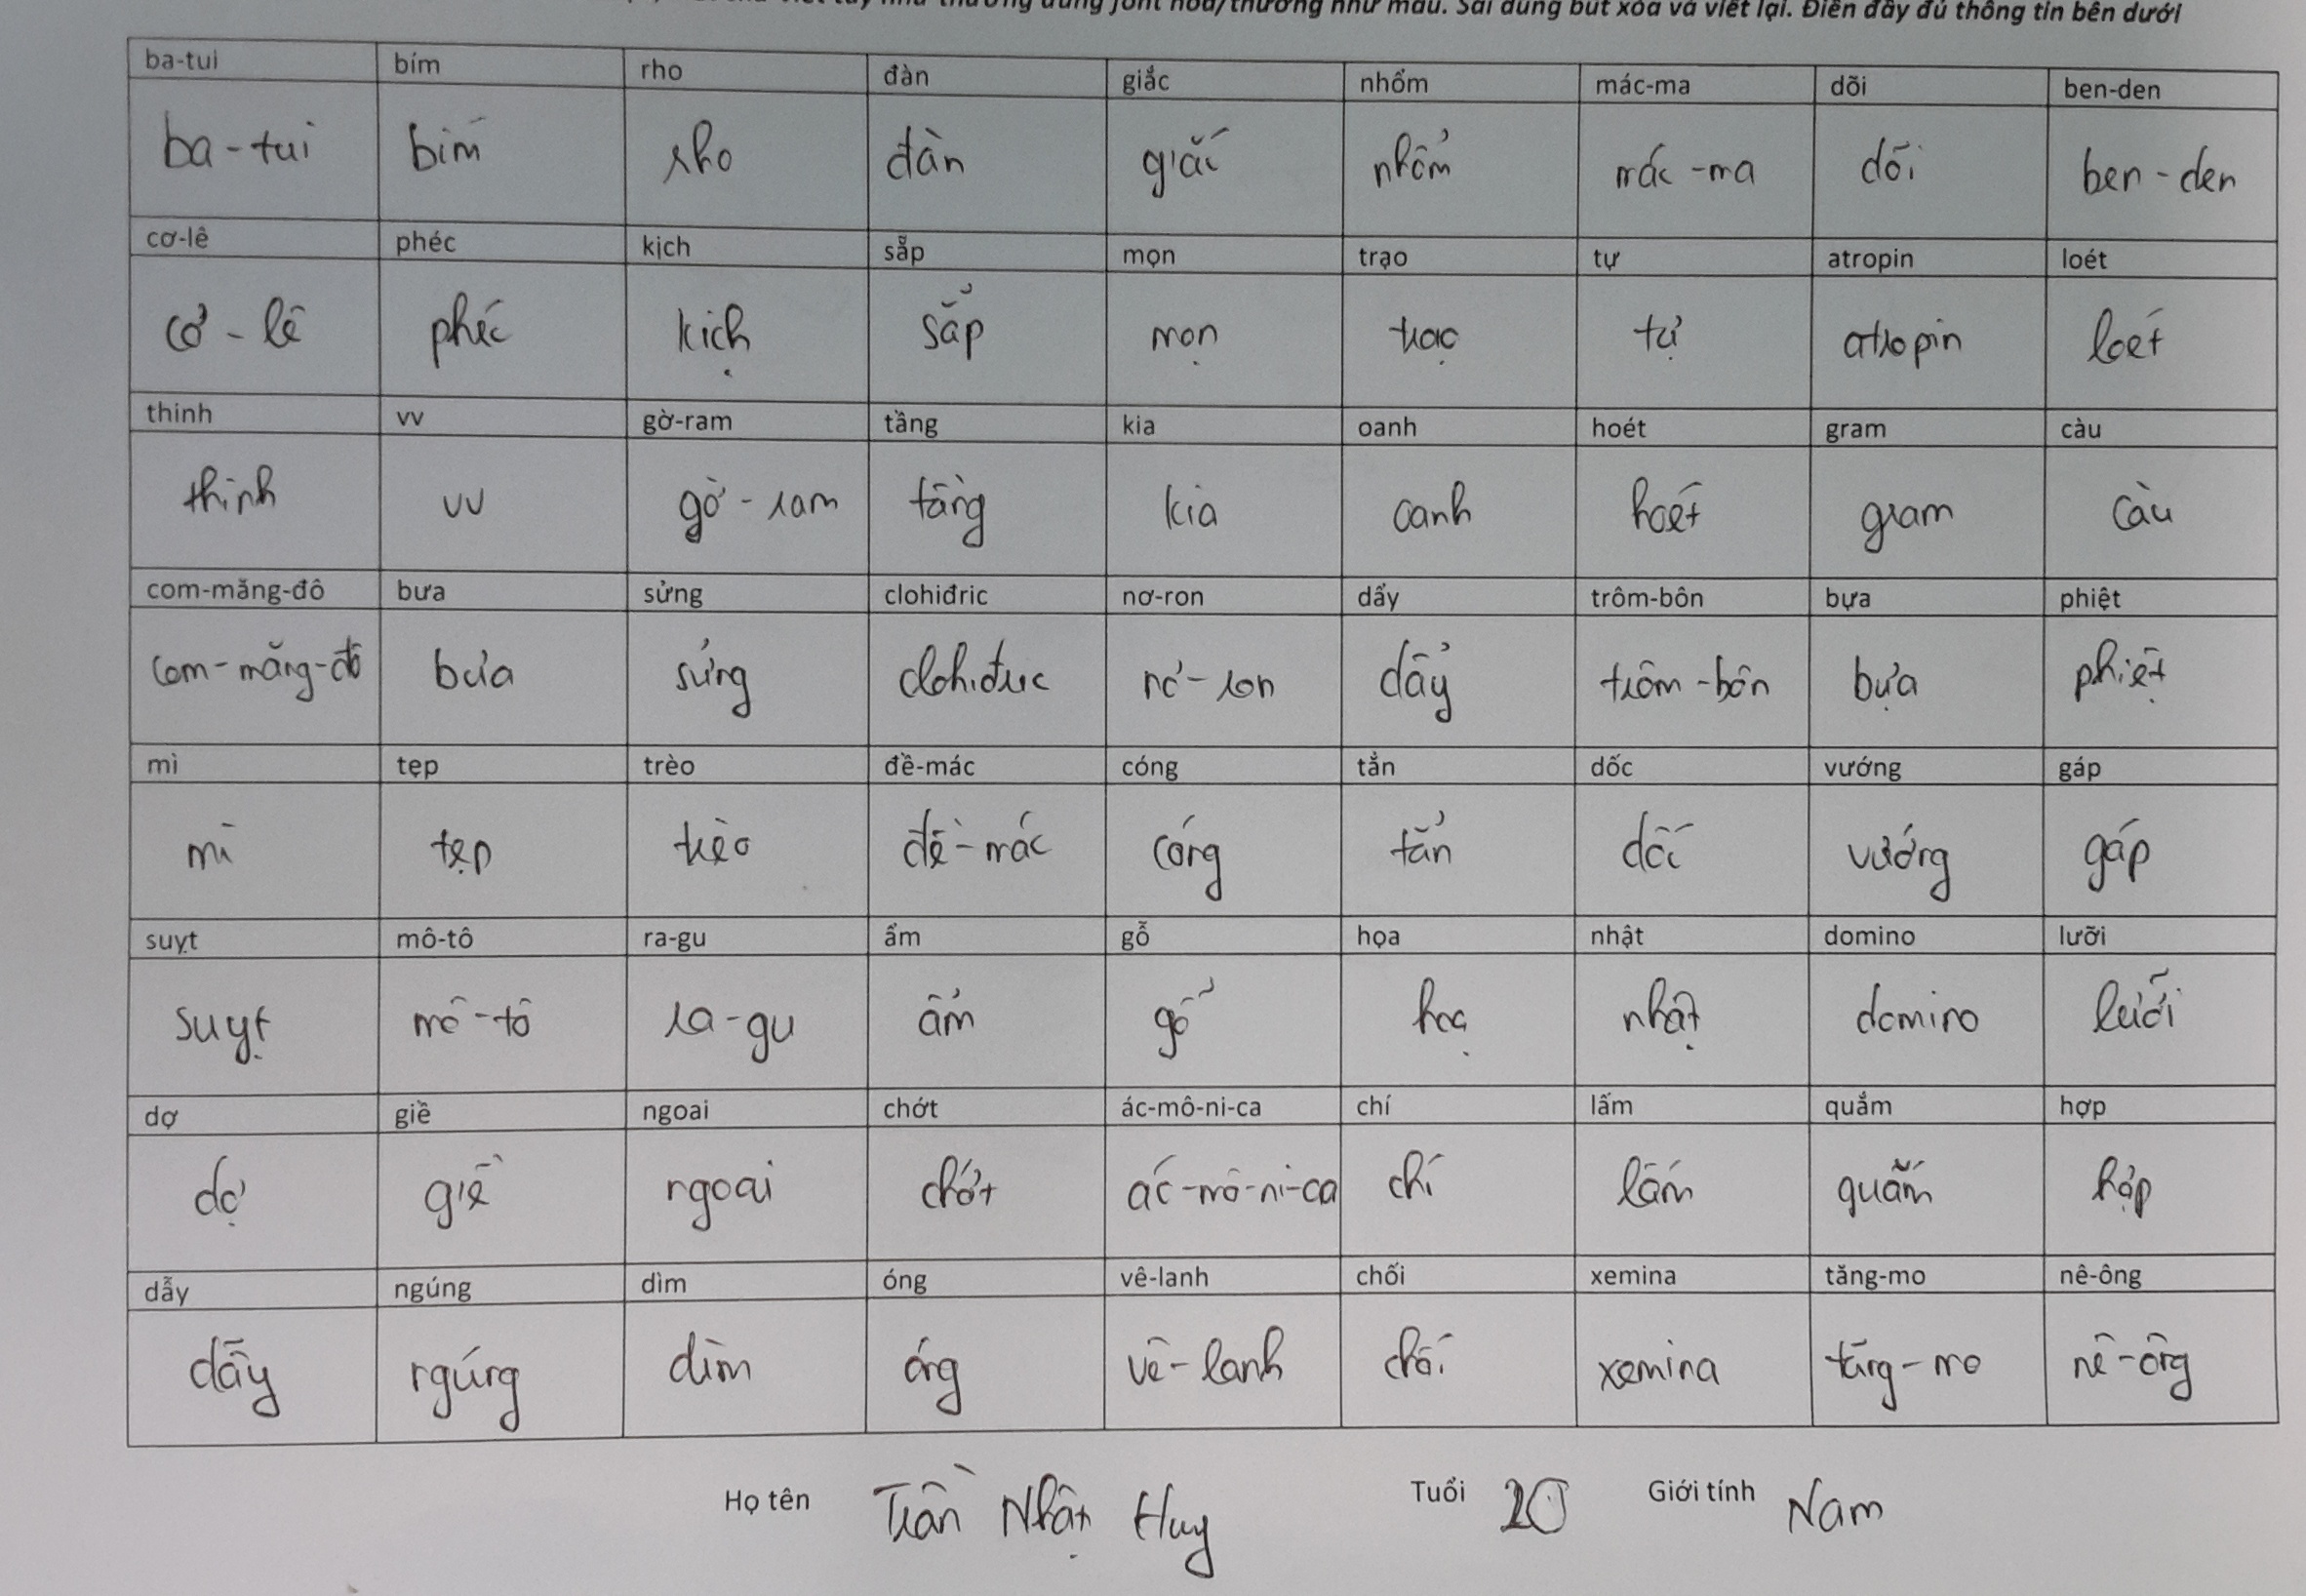 như thường dùng font hoa/thường như mẫu. Sai dùng bút xóa và viết lại. Điền đầy đủ thông tin bên dưới
ba-tui bím rho đàn giắc nhổm mác-ma dõi ben-den
ba-tui bím rho đàn giắc nhổm mác-ma dõi ben-den
cơ-lê phéc kịch sẵp mọn trạo tự atropin loét
cơ-lê phéc kịch sẳp mọn trạo tự atropin loét
thinh vv gờ-ram tầng kia oanh hoét gram càu
thinh vv gờ-ram tầng kia oanh hoét gram càu
com-măng-đô bưa sửng clohiđric nơ-ron dẩy trôm-bôn bựa phiệt
com-măng-đô bưa sửng clohiđric nơ-ron dẩy trôm-bôn bựa phiệt
mì tẹp trèo đề-mác cóng tẳn dốc vướng gáp
mì tẹp trèo đề-mác cóng tẳn dốc vướng gáp
suỵt mô-tô ra-gu ẩm gỗ họa nhật domino lưỡi
suỵt mô-tô ra-gu ẩm gỗ họa nhật domino lưỡi
dợ giề ngoai chớt ác-mô-ni-ca chí lấm quắm hợp
dợ giề ngoai chớt ác-mô-ni-ca chí lấm quắm hợp
dẫy ngúng dìm óng vê-lanh chối xemina tăng-mo nê-ông
dẫy ngúng dìm óng vê-lanh chối xemina tăng-mo nê-ông
Họ tên Trần Nhật Huy Tuổi 20 Giới tính Nam